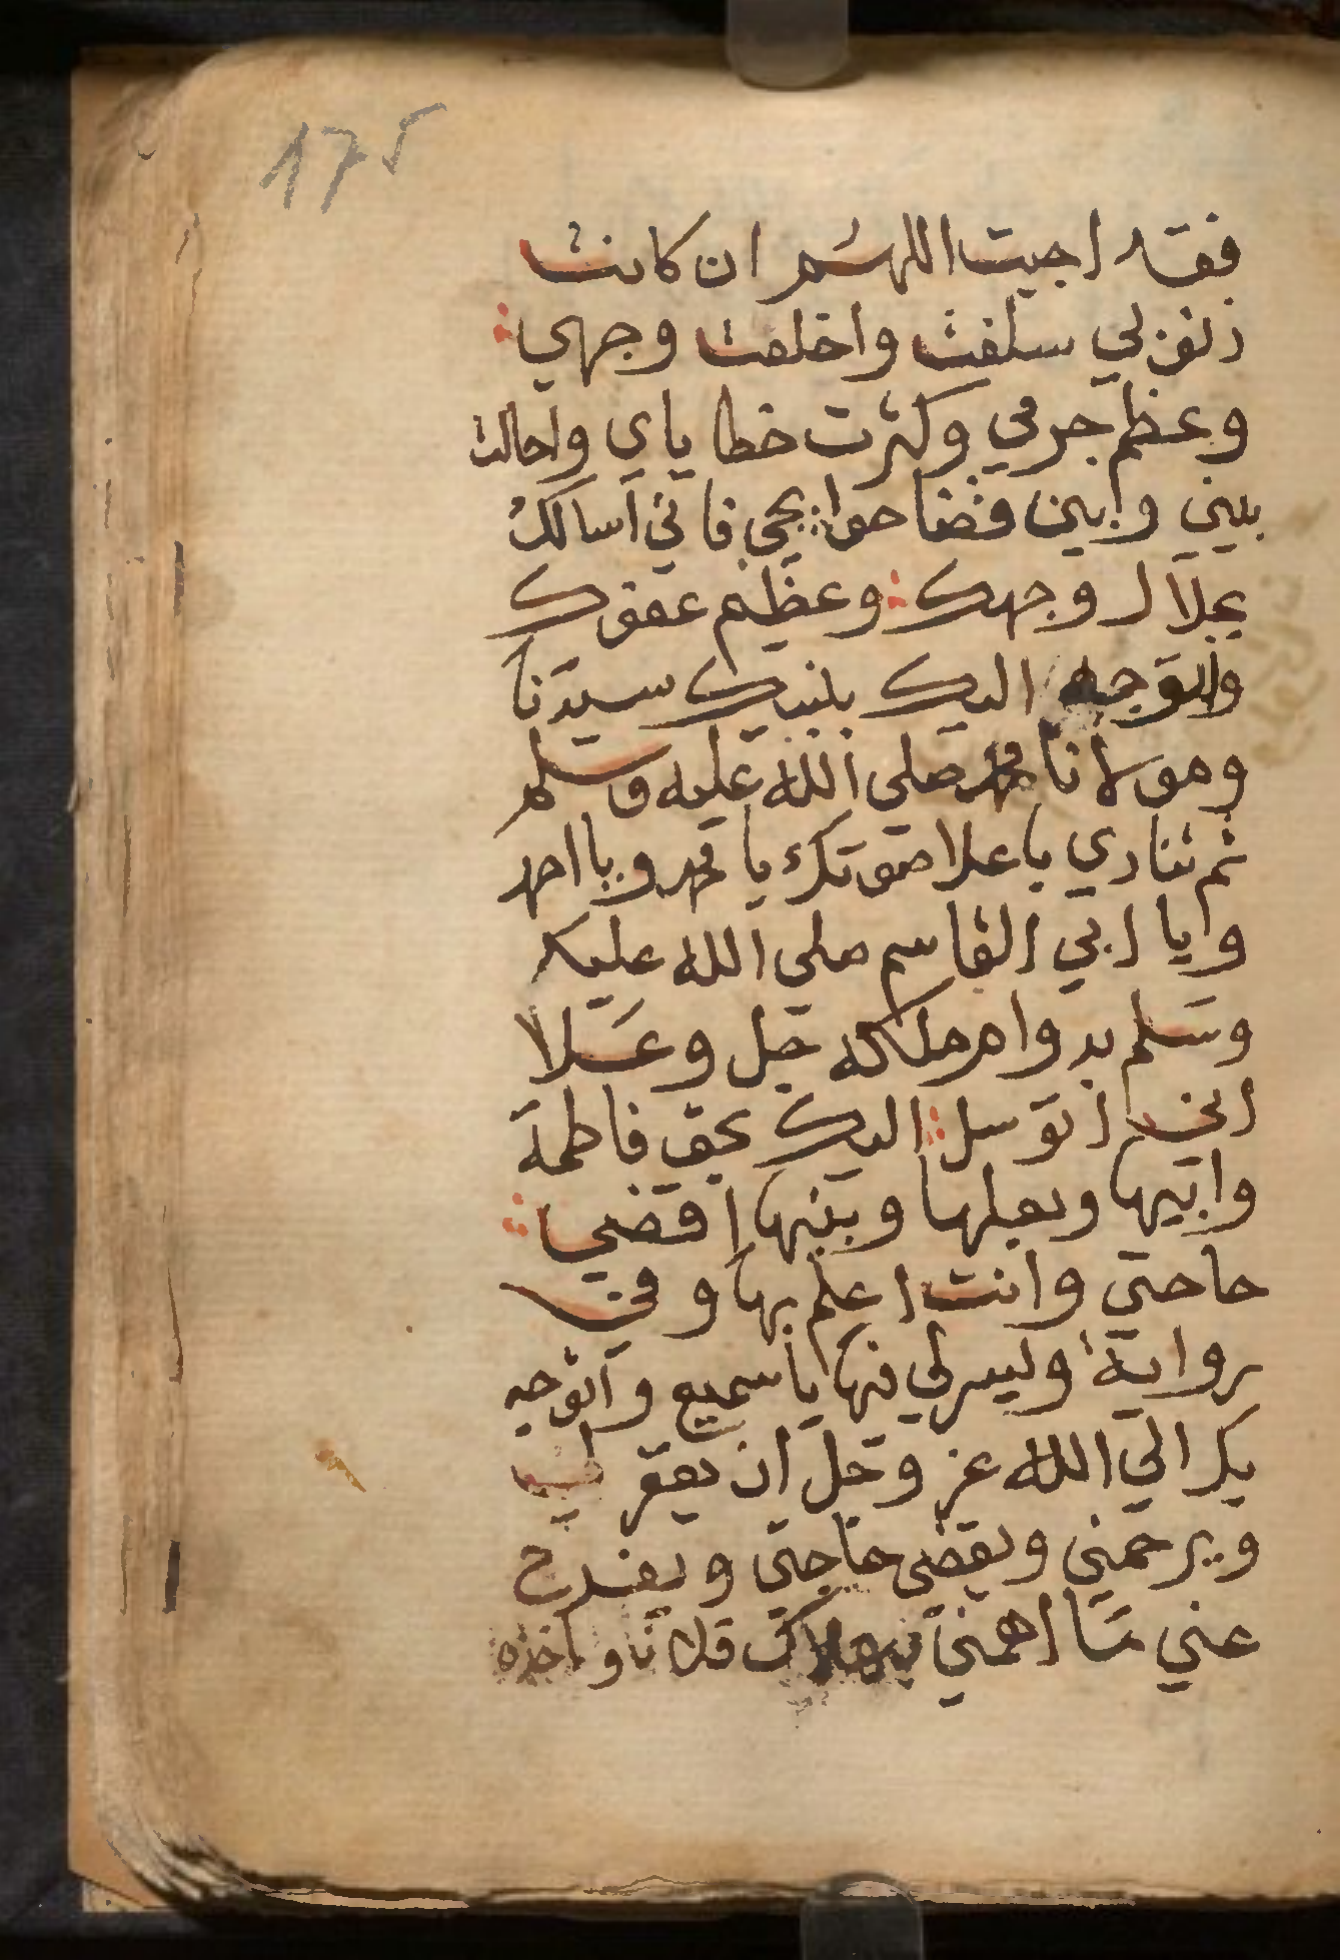 175
فقد اجيت اللهم ان كانت
ذنوبي سلفت واخلقت وجهي
وعظم جرمي وكثرت خطاياي واحالت
بيني وابين قضا حوايجي فاني اسالك
بجلال وجهك وعظيم عفوك
واتوجه اليك بنبيك سيدنا
ومولانا محمد صلي الله عليه وسلم
ثم تنادي باعلا صوتك يا محمد ويا احمد
وايا ابي القاسم صلي الله عليك
وسلم بدوام ملكه جل وعلا
اني اتوسل اليك بحق فاطمة
وابيها وبعلها وبنيها اقضي
حاجتي وانت اعلم بها وفي
رواية ويسر لي فيها يا سميع واتوجه
بك الي الله عز وجل ان يغفر لي
ويرحمني ويقضي حاجتي ويفرج
عني ما اهمني بهلاك فلانا واخذه